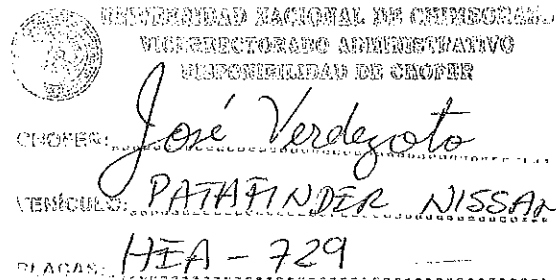 UNIVERSIDAD NACIONAL DE CHIMBORAZO
VICERRECTORADO ADMINISTRATIVO
DISPONIBILIDAD DE CHOFER
CHOFER: José Verdezoto
VEHÍCULO: PATHFINDER NISSAN
PLACAS: HEA - 729